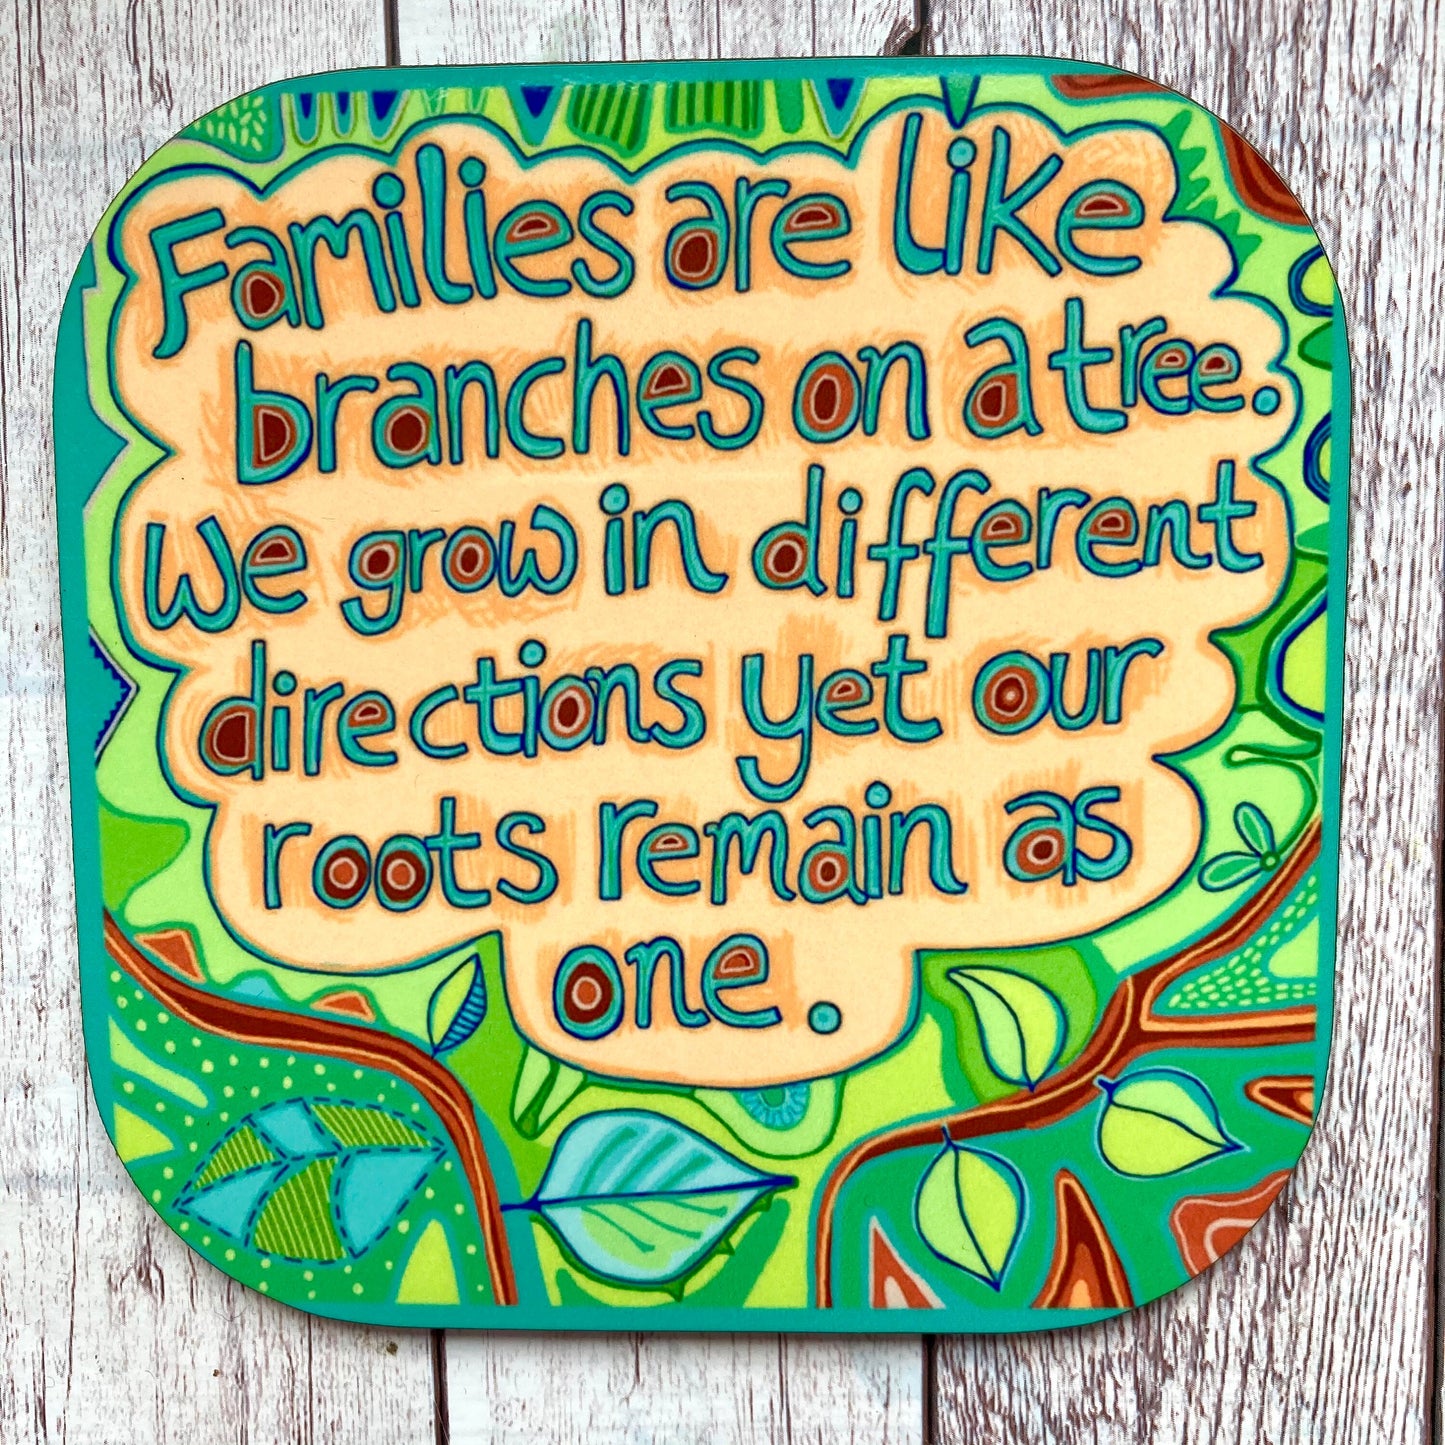 Families are like
branches on a tree.
We grow in different
directions yet our
roots remain as
one.